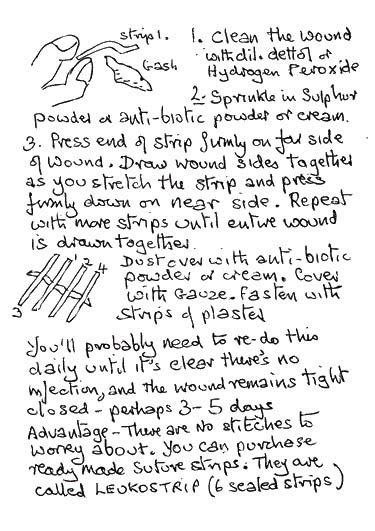 strip 1.
Gash
1. Clean the wound
with dil. dettol or
Hydrogen Peroxide
2. Sprinkle in Sulphur
powder or anti-biotic powder or cream.
3. Press end of strip firmly on far side
of wound. Draw wound sides together
as you stretch the strip and press
firmly down on near side. Repeat
with more strips until entire wound
is drawn together.
1 2 4
3
Dust over with anti-biotic
powder or cream. Cover
with Gauze. Fasten with
strips of plaster
You'll probably need to re-do this
daily until it's clear there's no
infection, and the wound remains tight
closed - perhaps 3-5 days
Advantage - There are no stitches to
worry about. You can purchase
ready made suture strips. They are
called LEUKOSTRIP (6 sealed strips)